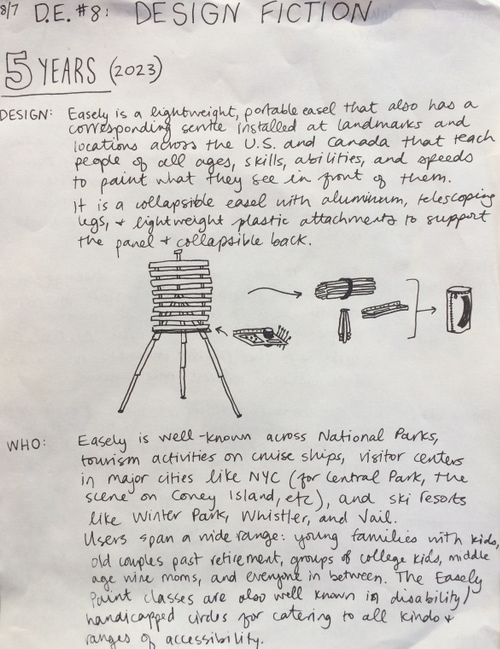 8/7 D.E. #8: DESIGN FICTION
5 YEARS (2023)
DESIGN: Easely is a lightweight, portable easel that also has a
corresponding service installed at landmarks and
locations across the U.S. and Canada that teach
people of all ages, skills, abilities, and speeds
to paint what they see in front of them.
It is a collapsible easel with aluminum, telescoping
legs, + lightweight plastic attachments to support
the panel + collapsible back.
WHO: Easely is well-known across National Parks,
tourism activities on cruise ships, visitor centers
in major cities like NYC (for Central Park, the
scene on Coney Island, etc), and ski resorts
like Winter Park, Whistler, and Vail.
Users span a wide range: young families with kids,
old couples past retirement, groups of college kids, middle
age wine moms, and everyone in between. The Easely
Paint classes are also well known in disability/
handicapped circles for catering to all kinds +
ranges of accessibility.